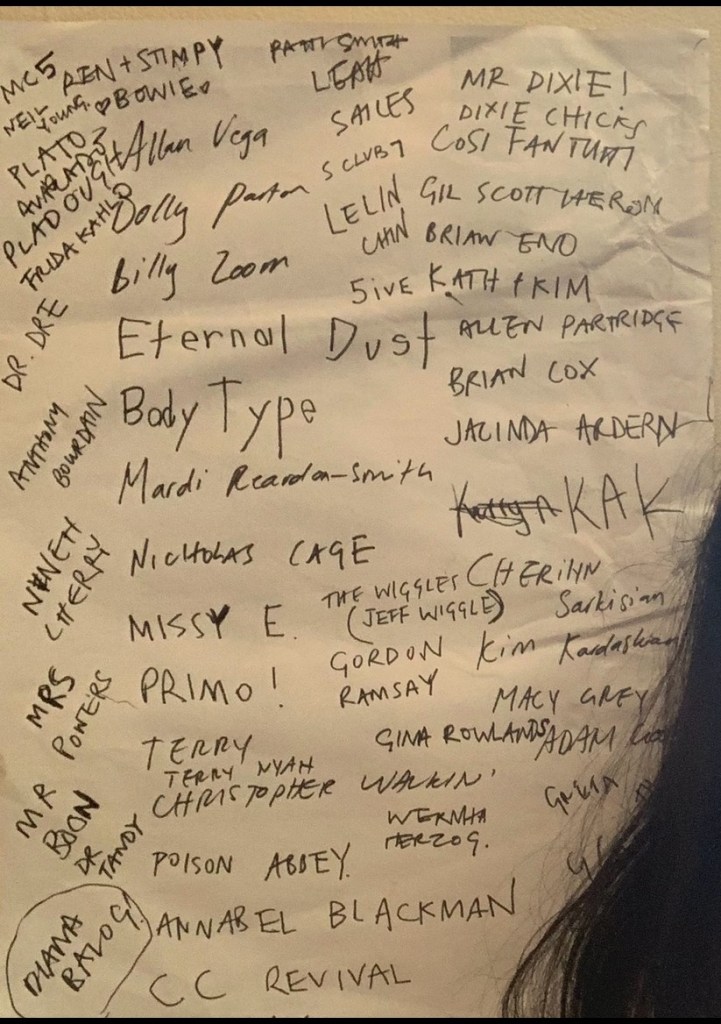 MC5
NEIL YOUNG
PLATO?
PLADOUGH
FRIDA KAHLO
DR. DRE
ANTHONY BOURDAIN
NENEH CHERRY
MRS POWERS
MR BOON
DR TANDY
DIANA BALOG!
REN + STIMPY
♡BOWIE♡
Allan Vega
Dolly Parton
Billy Zoom
Eternal Dust
Body Type
Mardi Reardon-Smith
NICHOLAS CAGE
MISSY E.
PRIMO!
TERRY
TERRY NYAH
CHRISTOPHER WALKIN'
POISON ABBEY.
ANNABEL BLACKMAN
CC REVIVAL
PATTI SMITH
LEAH
SAILES
S CLUB 7
LELIN
CHIN
5IVE
THE WIGGLES
(JEFF WIGGLE)
GORDON
RAMSAY
GINA ROWLANDS
HERZOG.
MR DIXIE!
DIXIE CHICKS
COSI FAN TUTTI
GIL SCOTT HERON
BRIAN ENO
KATH + KIM
ALLEN PARTRIDGE
BRIAN COX
JACINDA ARDERN
KAK
CHERILYN
Sarkisian
Kim Kardashian
MACY GREY
ADAM
GRETA